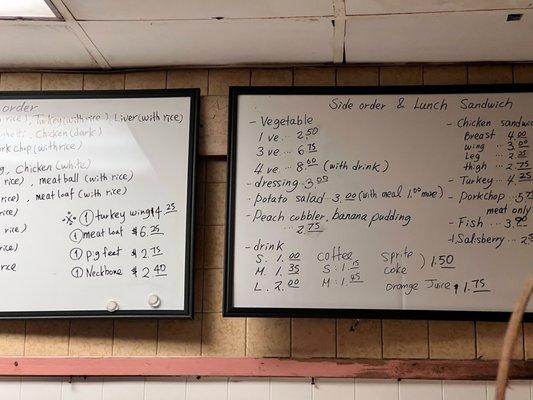 order
rice), Turkey (with rice), Liver (with rice)
Chicken (dark)
(with rice)
Chicken (white)
rice), meat ball (with rice)
rice), meat loaf (with rice)
rice)
rice)
rice)
rice
① turkey wing $4.25
① meat loaf $6.25
① pig feet $2.75
① Neckbone $2.40
Side order & Lunch Sandwich
- Vegetable
1 ve... 2.50
3 ve... 6.75
4 ve... 8.00 (with drink)
- dressing 3.00
- potato salad 3.00 (with meal 1.00 more)
- Peach cobbler, banana pudding
... 2.75
- drink
S. 1.00
M. 1.35
L. 2.00
coffee
S: 1.15
M: 1.45
Sprite
Coke ) 1.50
Orange Juice $1.75
- Chicken sandwi
Breast 4.00
wing ... 3.00
Leg ... 2.35
thigh ... 2.75
- Turkey ... 4.25
- Porkchop 5.75
meat only
- Fish ...
- Salisberry ... 2.